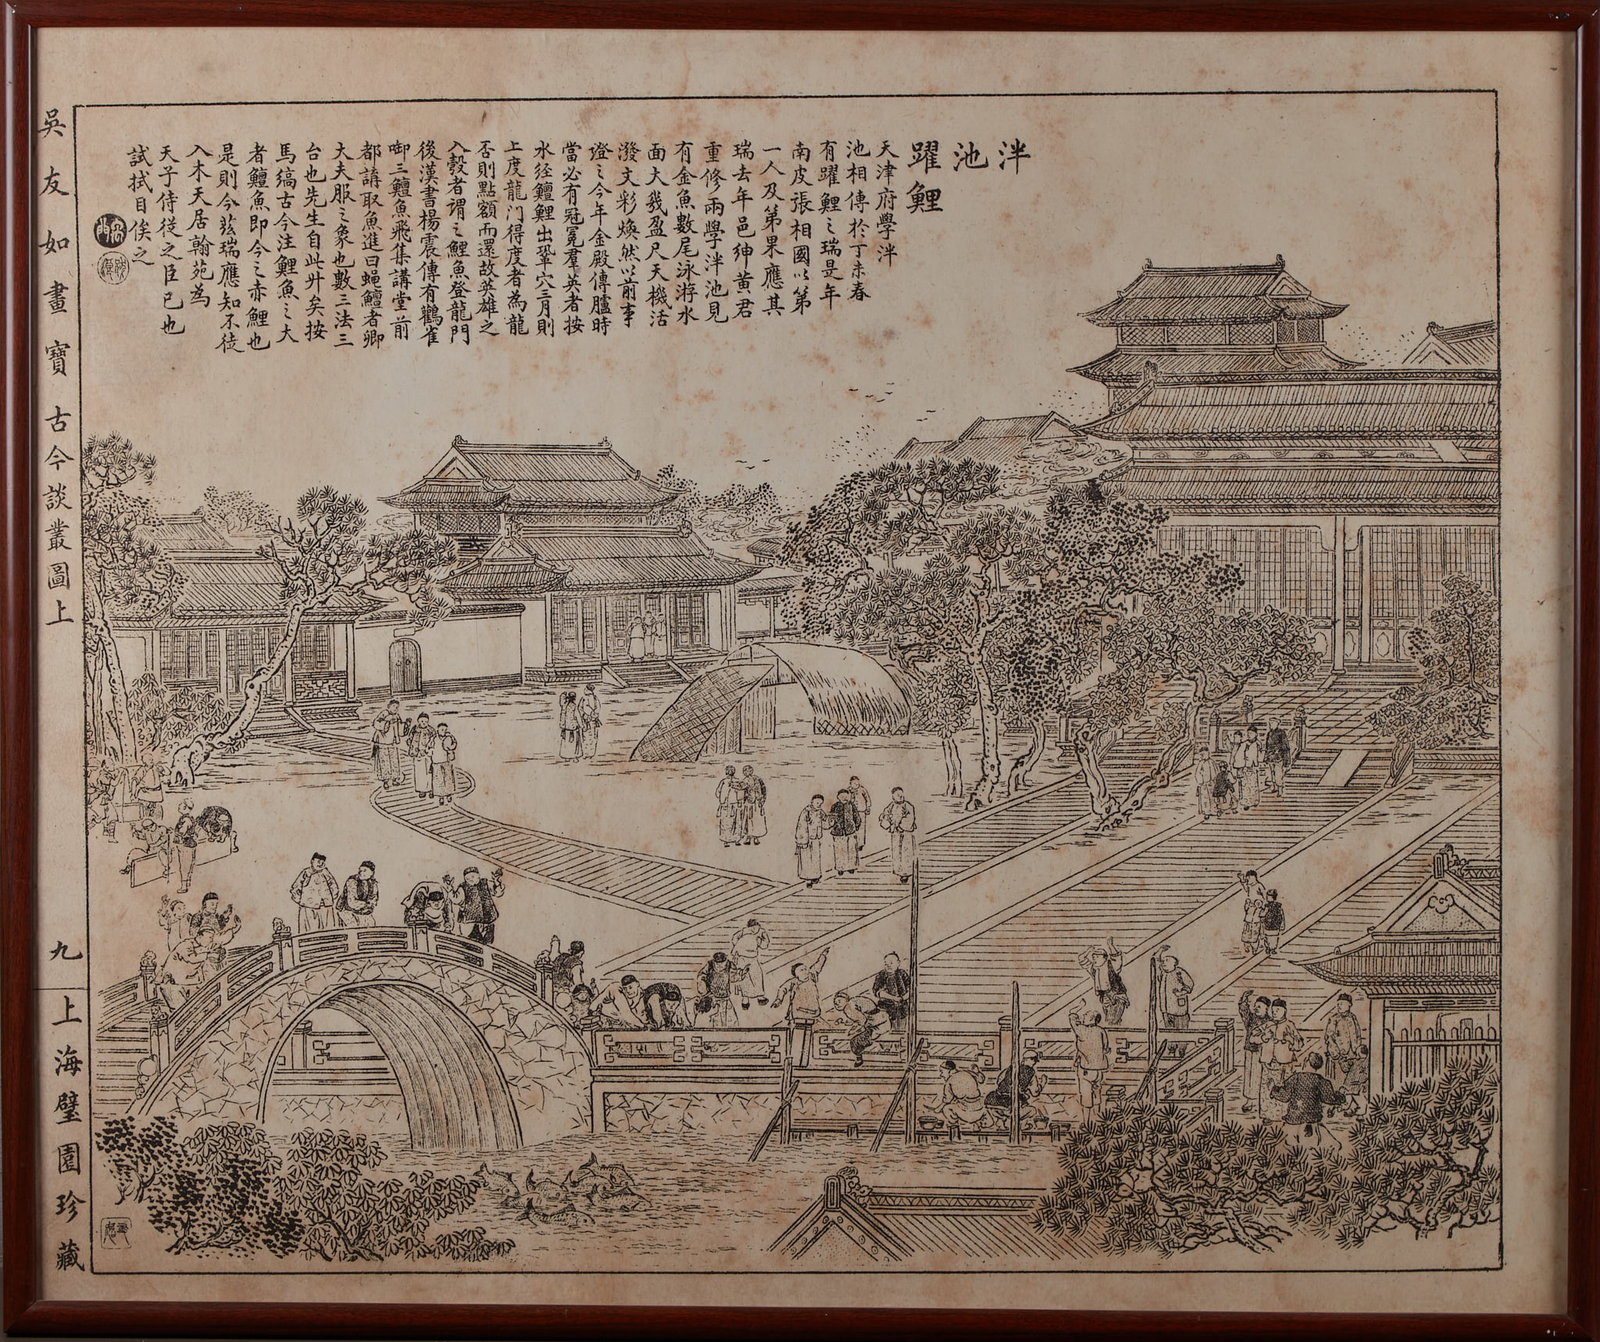 泮池
躍鯉
天津府學泮
池相傳於丁未春
有躍鯉之瑞是年
南皮張相國以第
一人及第果應其
瑞去年邑紳黃君
重修兩學泮池見
有金魚數尾泳游水
面大幾盈尺天機活
潑文彩煥然以前事
證之今年金殿傳臚時
當必有冠冕羣英者按
水經鱣鯉出鞏穴三月則
上度龍門得度者為龍
否則點額而還故英雄之
入彀者謂之鯉魚登龍門
後漢書楊震傳有鸛雀
啣三鱣魚飛集講堂前
都講取魚進曰蛇鱣者卿
大夫服之象也數三法三
台也先生自此升矣按
馬縞古今注鯉魚之大
者鱣魚即今之赤鯉也
是則今茲瑞應知不徒
入木天居翰苑為
天子侍從之臣已也
試拭目俟之
吳友如畫寶 古今談叢圖上
九
上海璧園珍藏